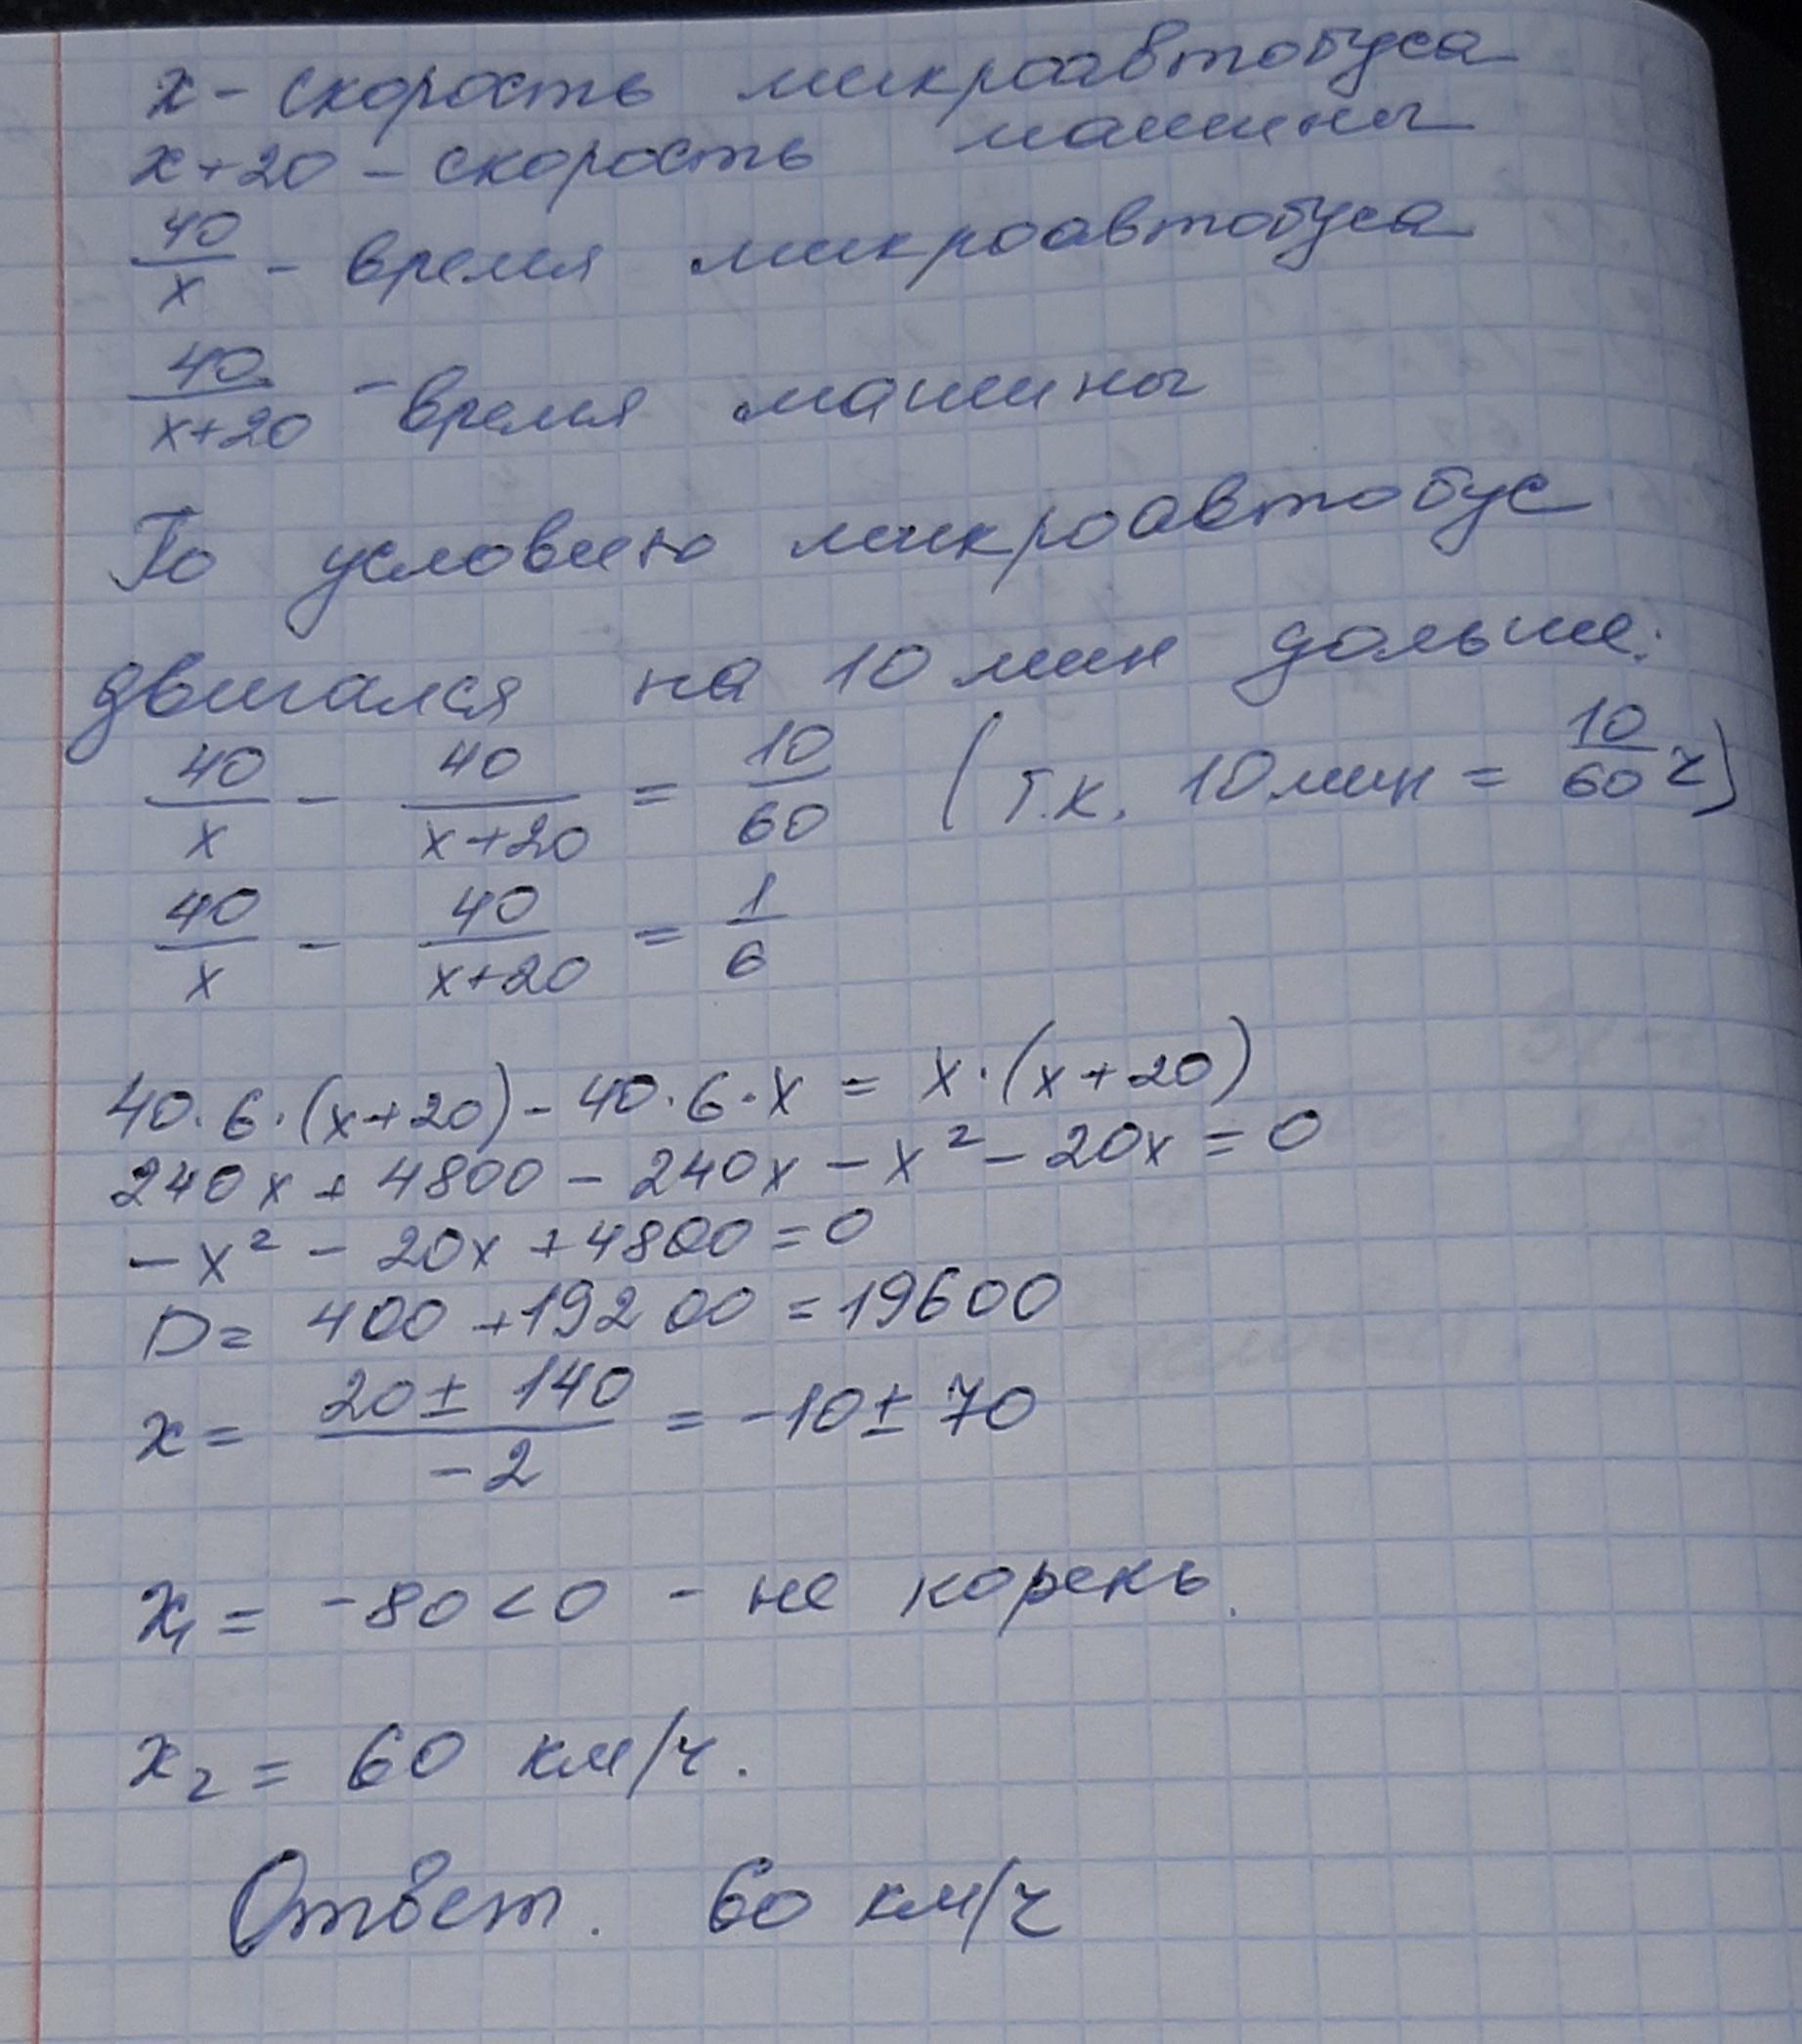 x - скорость микроавтобуса
x+20 - скорость машины
40/x - время микроавтобуса
40/(x+20) - время машины
По условию микроавтобус
двигался на 10 мин дольше:
40/x - 40/(x+20) = 10/60 (т.к. 10 мин = 10/60 ч)
40/x - 40/(x+20) = 1/6
40·6·(x+20) - 40·6·x = x·(x+20)
240x + 4800 - 240x - x² - 20x = 0
-x² - 20x + 4800 = 0
D = 400 + 19200 = 19600
x = (20 ± 140)/(-2) = -10 ± 70
x₁ = -80 < 0 - не корень.
x₂ = 60 км/ч.
Ответ. 60 км/ч